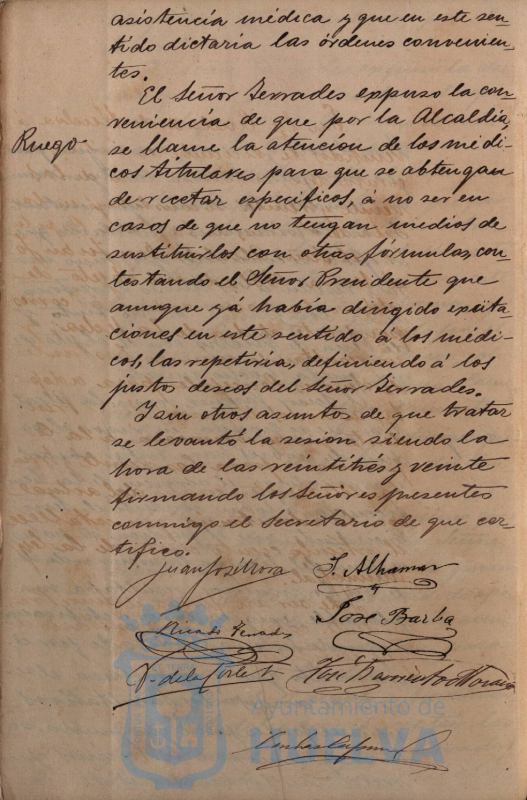 asistencia médica y que en este sen-
tido dictaria las órdenes convenien-
tes.
El Señor Terrades expuso la con-
Ruego
veniencia de que por la Alcaldía,
se llame la atención de los médi-
cos titulares para que se abtengan
de recetar especificos, á no ser en
casos de que no tengan medios de
sustituirlos con otras fórmulas, con-
testando el Señor Presidente que
aunque yá había dirigido exita-
ciones en este sentido á los médi-
cos, las repetiria, definiendo á los
justo deseos del Señor Terrades.
Y sin otros asunto de que tratar
se levantó la sesion siendo la
hora de las veintitrés y veinte
firmando los Señores presentes
conmigo el Secretario de que cer-
tifico.
Juan José Mora
J. Alhamar
José Barba
Ricardo Terrades
José Barriento
Ayuntamiento de
HUELVA